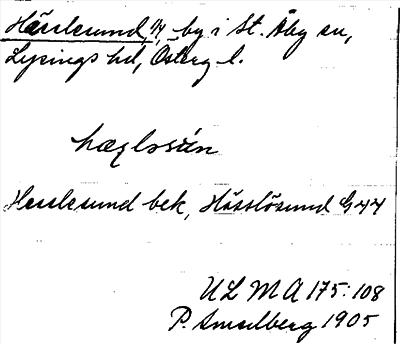 Hässlesund, by i St. Åby sn,
Lysings hd, Österg l.
hæʒlssún
Hesslesund bek, Hässlösund G44
ULMA 175:108
P. Amselberg 1905